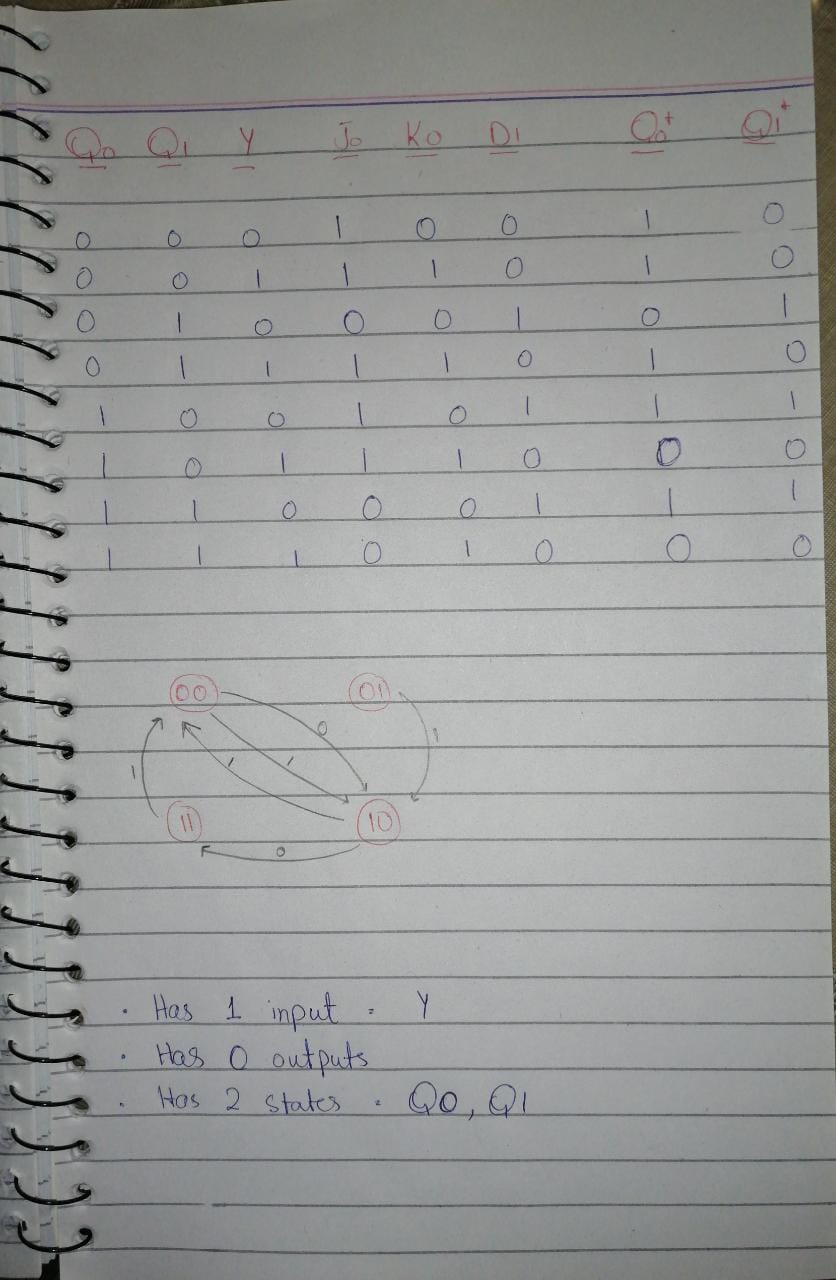 Q0 Q1 Y J0 K0 D1 Q0+ Q1+
0 0 0 1 0 0 1 0
0 0 1 1 1 0 1 0
0 1 0 0 0 1 0 1
0 1 1 1 1 0 1 0
1 0 0 1 0 1 1 1
1 0 1 1 1 0 0 0
1 1 0 0 0 1 1 1
1 1 1 0 1 0 0 0
00 01
0 1
1 1 1
11 10
0
· Has 1 input = Y
· Has 0 outputs
· Has 2 states = Q0, Q1